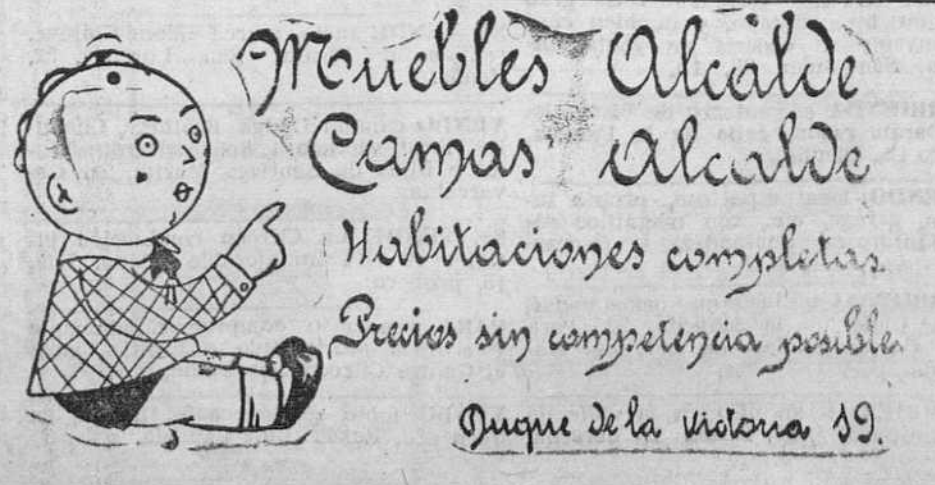 Muebles Alcalde
Camas Alcalde
Habitaciones completas
Precios sin competencia posible.
Duque de la victoria 19.